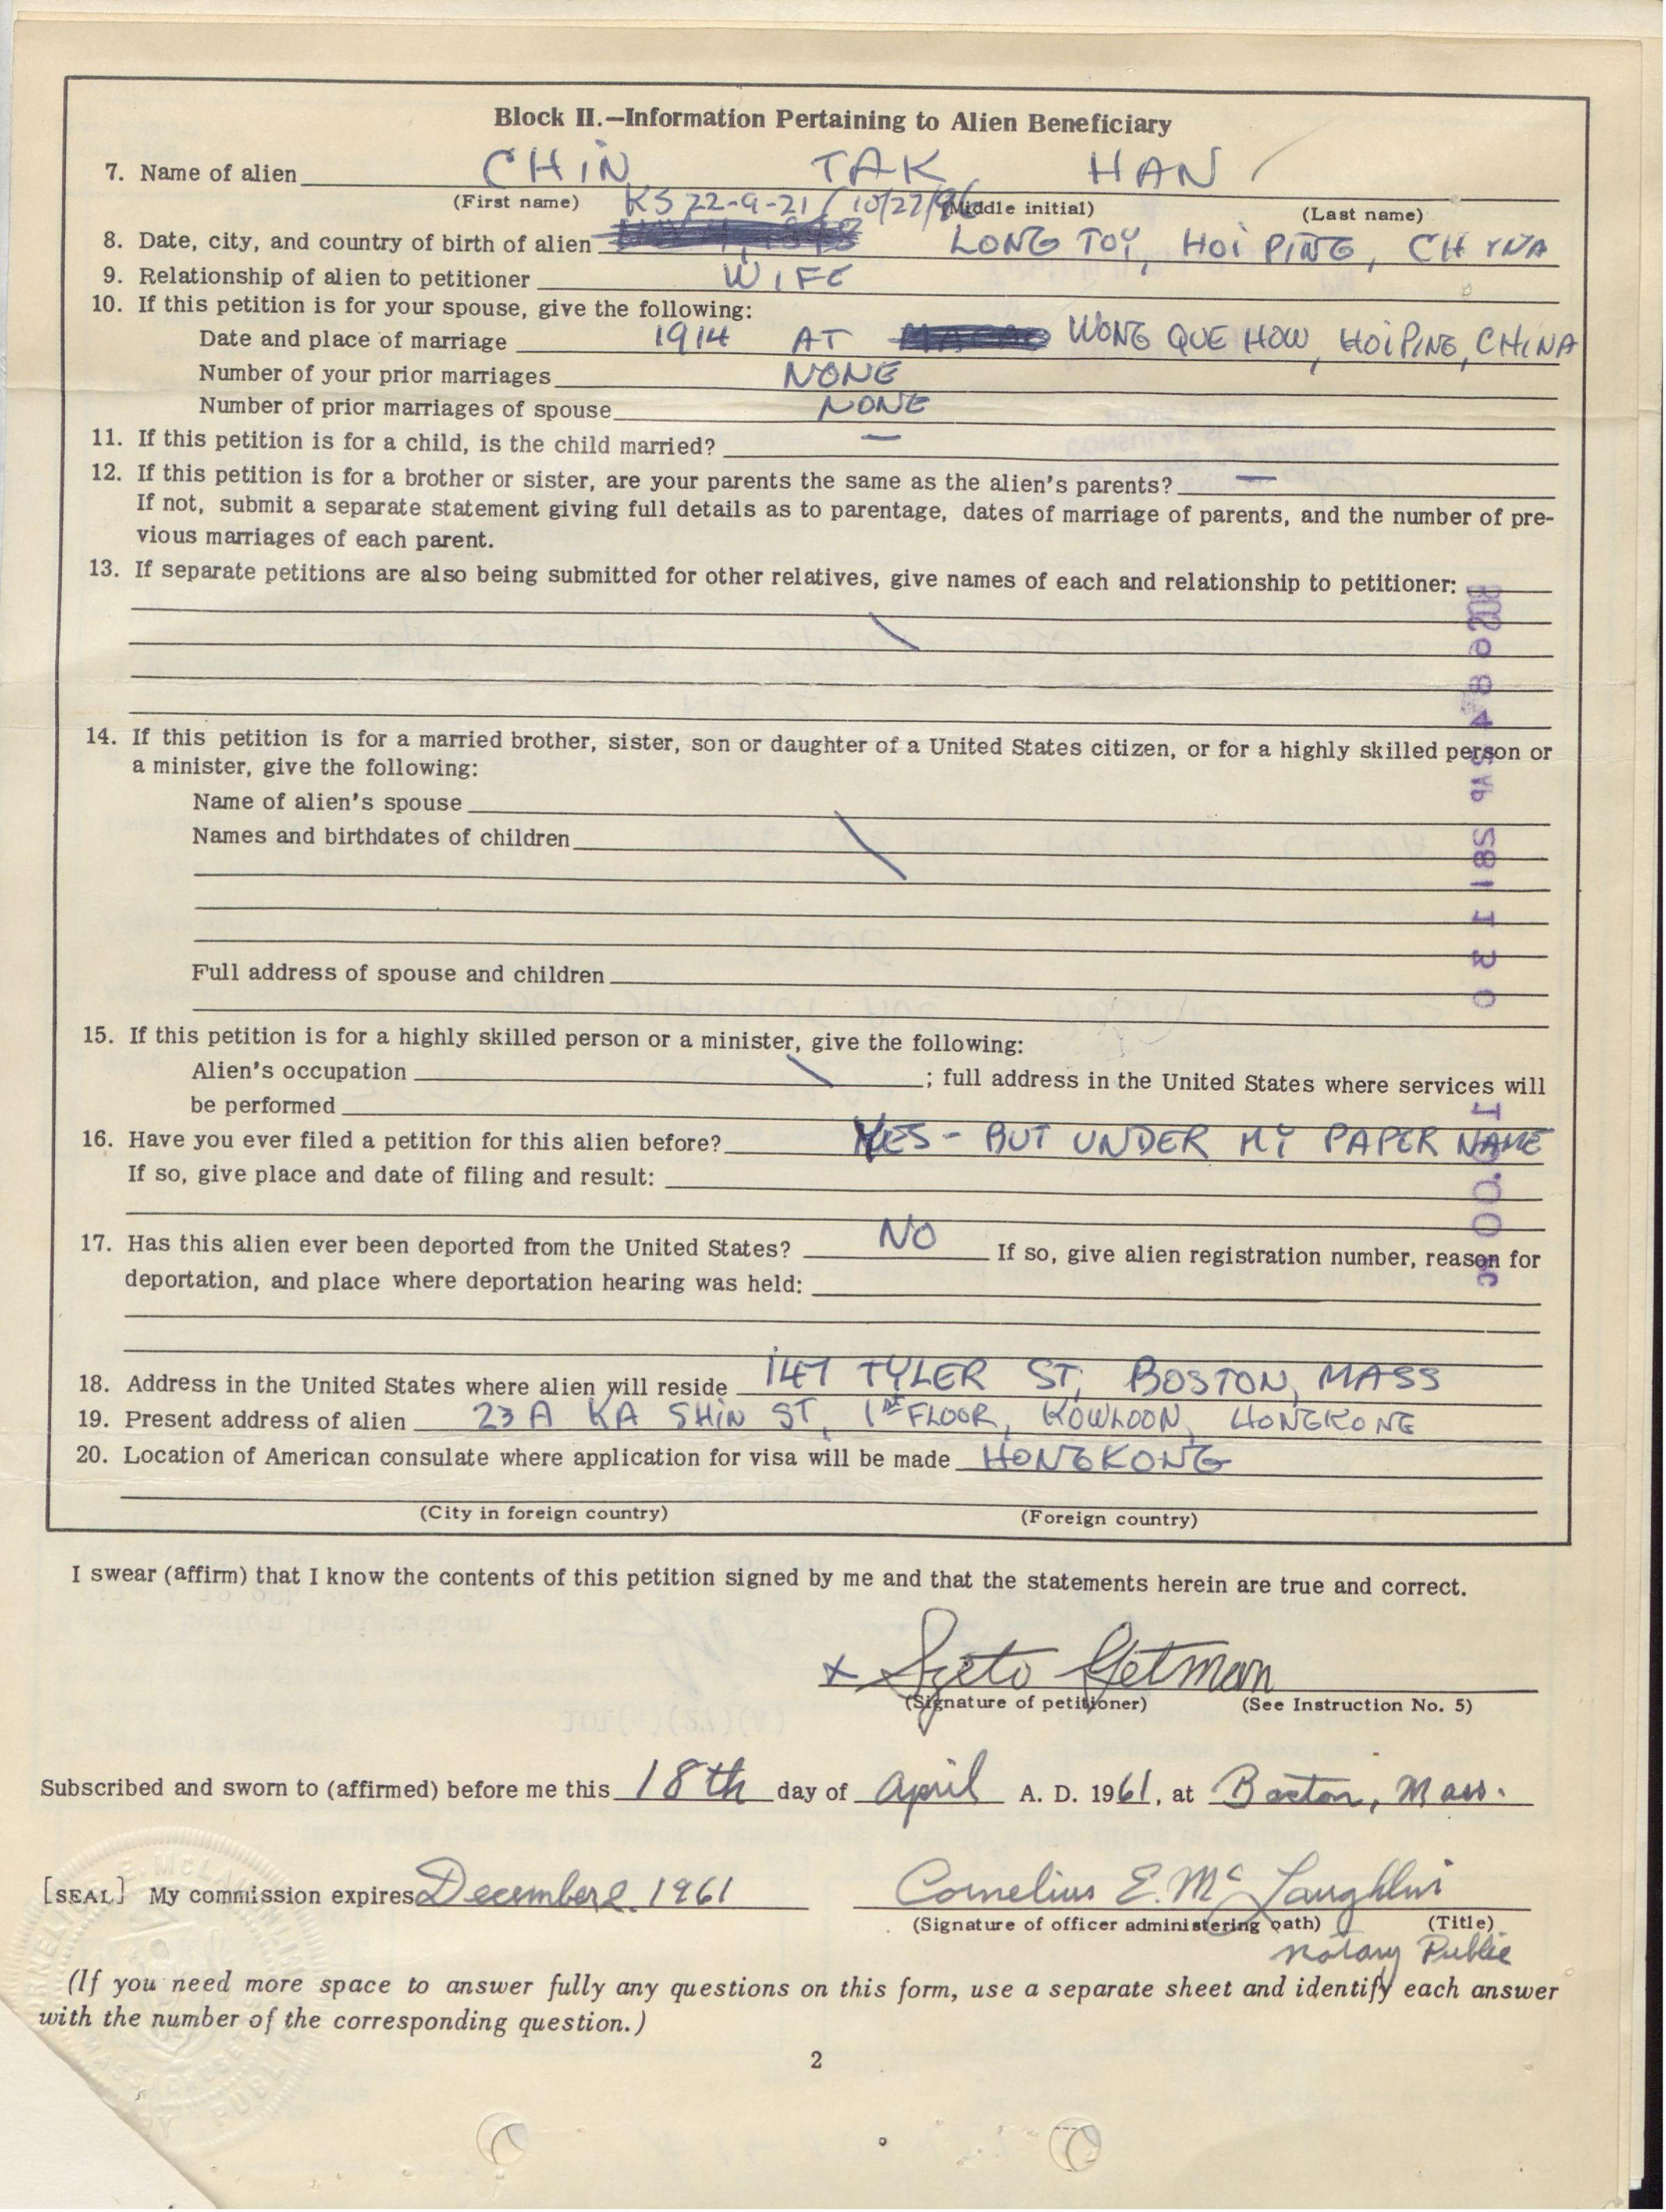 Block II.—Information Pertaining to Alien Beneficiary
7. Name of alien CHIN TAK HAN
(First name) (Middle initial) (Last name)
KS 22-9-21 / 10/27/96
8. Date, city, and country of birth of alien LONG TOY, HOI PING, CHINA
9. Relationship of alien to petitioner WIFE
10. If this petition is for your spouse, give the following:
Date and place of marriage 1914 AT WONG QUE HOW, HOIPING, CHINA
Number of your prior marriages NONE
Number of prior marriages of spouse NONE
11. If this petition is for a child, is the child married? —
12. If this petition is for a brother or sister, are your parents the same as the alien's parents? —
If not, submit a separate statement giving full details as to parentage, dates of marriage of parents, and the number of pre-
vious marriages of each parent.
13. If separate petitions are also being submitted for other relatives, give names of each and relationship to petitioner:
14. If this petition is for a married brother, sister, son or daughter of a United States citizen, or for a highly skilled person or
a minister, give the following:
Name of alien's spouse
Names and birthdates of children
Full address of spouse and children
15. If this petition is for a highly skilled person or a minister, give the following:
Alien's occupation ; full address in the United States where services will
be performed
16. Have you ever filed a petition for this alien before? YES - BUT UNDER MY PAPER NAME
If so, give place and date of filing and result:
17. Has this alien ever been deported from the United States? NO If so, give alien registration number, reason for
deportation, and place where deportation hearing was held:
18. Address in the United States where alien will reside 147 TYLER ST, BOSTON, MASS
19. Present address of alien 23A KA SHIN ST, 1ST FLOOR, KOWLOON, HONGKONG
20. Location of American consulate where application for visa will be made HONGKONG
(City in foreign country) (Foreign country)
I swear (affirm) that I know the contents of this petition signed by me and that the statements herein are true and correct.
x Szeto Getman
(Signature of petitioner) (See Instruction No. 5)
Subscribed and sworn to (affirmed) before me this 18th day of April A. D. 1961, at Boston, Mass.
[SEAL] My commission expires December 2, 1961 Cornelius E. McLaughlin
(Signature of officer administering oath) (Title)
Notary Public
(If you need more space to answer fully any questions on this form, use a separate sheet and identify each answer
with the number of the corresponding question.)
2